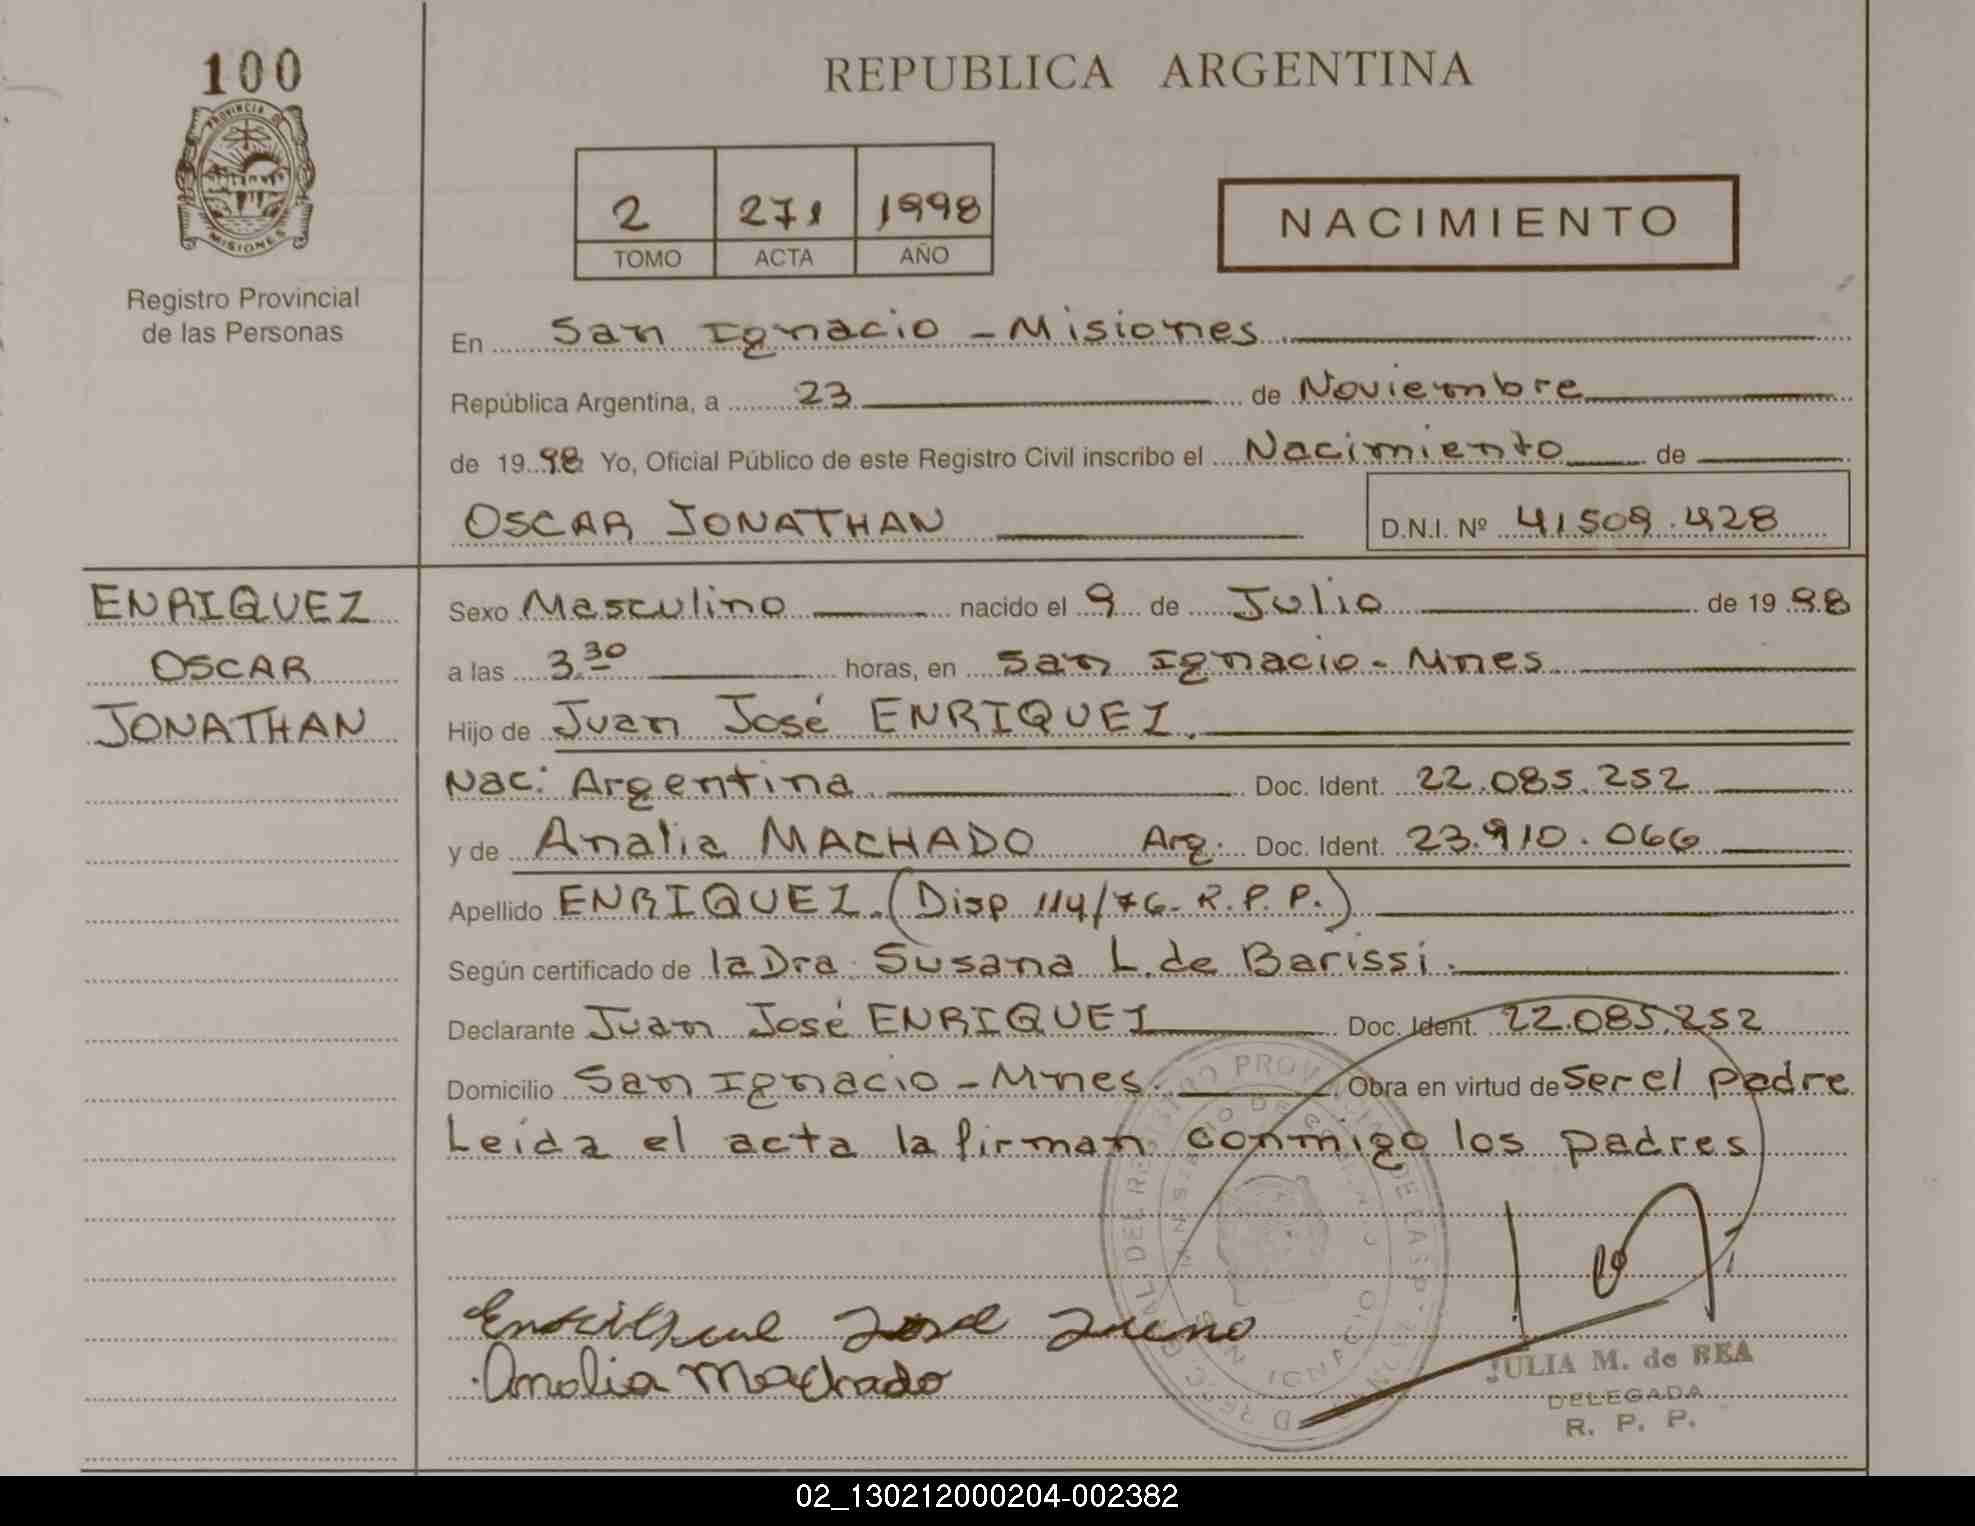 100
REPUBLICA ARGENTINA
PROVINCIA DE
MISIONES
2 271 1998
TOMO ACTA AÑO
NACIMIENTO
Registro Provincial
de las Personas
En San Ignacio - Misiones
República Argentina, a 23 de Noviembre
de 1998 Yo, Oficial Público de este Registro Civil inscribo el Nacimiento de
OSCAR JONATHAN D.N.I. Nº 41509.428
ENRIQUEZ
OSCAR
JONATHAN
Sexo Masculino nacido el 9 de Julio de 1998
a las 3.30 horas, en San Ignacio - Mnes
Hijo de Juan José ENRIQUEZ.
Nac: Argentina Doc. Ident. 22.085.252
y de Analia MACHADO Arg. Doc. Ident. 23.910.066
Apellido ENRIQUEZ. (Disp 114/76- R.P.P.)
Según certificado de la Dra. Susana L. de Barissi.
Declarante Juan José ENRIQUEZ Doc. Ident. 22.085.252
Domicilio San Ignacio - Mnes. Obra en virtud de Ser el padre
Leída el acta la firman conmigo los padres
José
Analia Machado
JULIA M. de REA
DELEGADA
R. P. P.
02_130212000204-002382